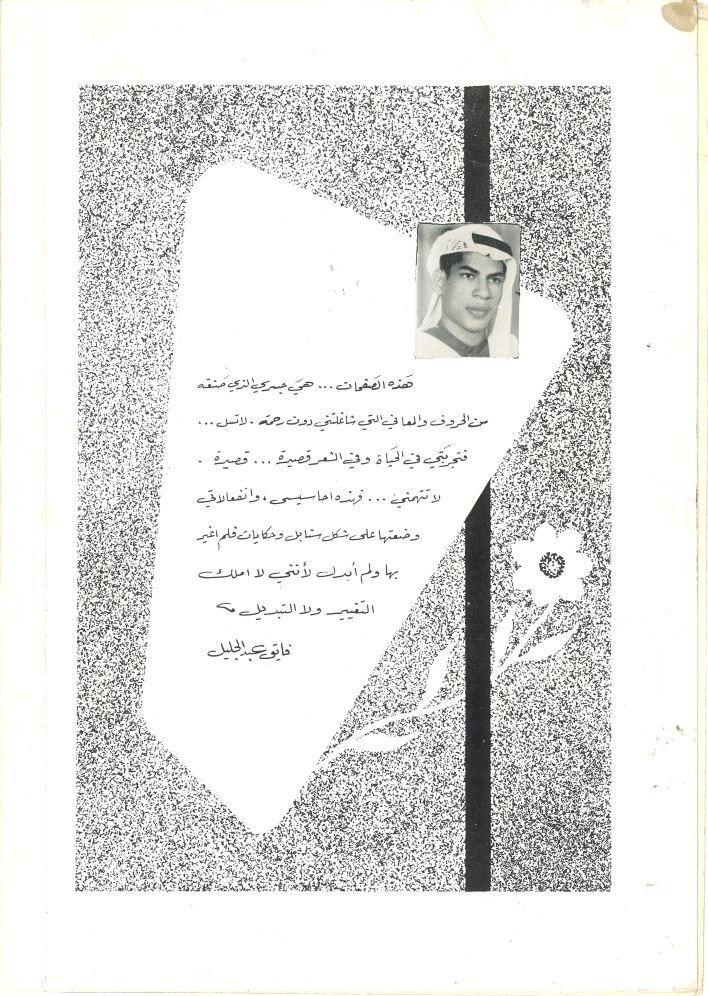 هَذه الصَفحات ... هيَ جسري الذي صَنعته
من الحروف والمعاني التي شاغلتني دون رحمة . لا تسل ...
فتجربَتي في الحيَاة وفي الشعر قصيرة ... قصيرة .
لا تتهمني ... فهذه احاسيسي ، وانفعالاتي
وضعتها على شكل سنابل وحكايات فلم اغير
بها ولم أبدل لأنني لا املك
التغيير ولا التبديل
فايق عبدالجليل